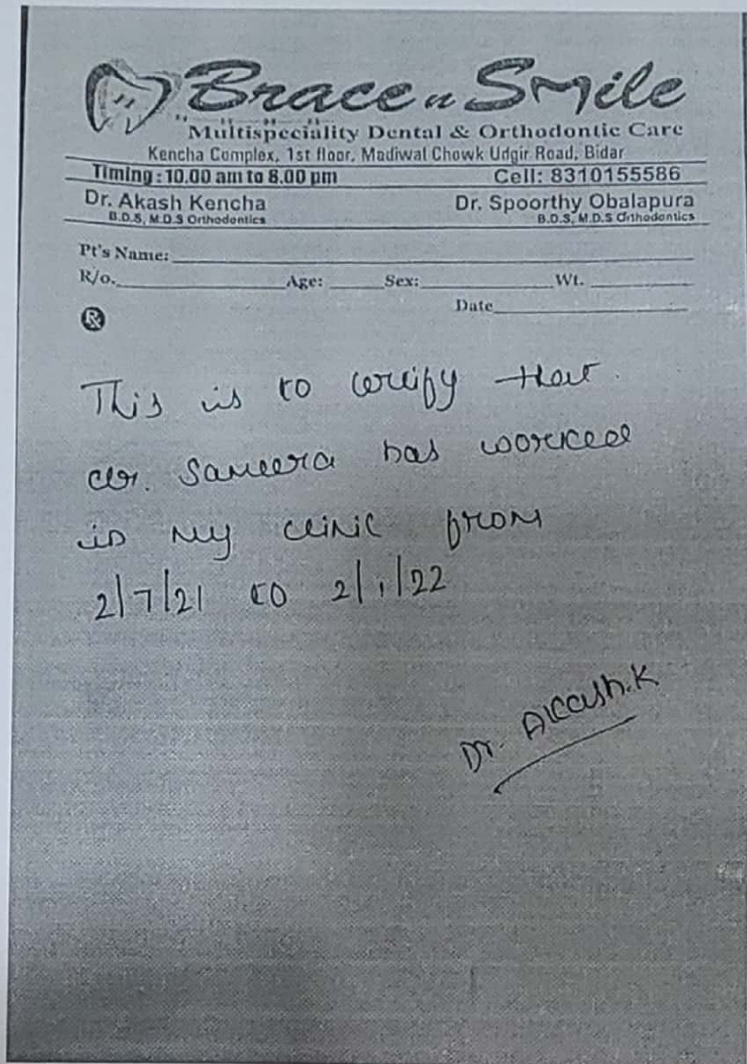 Brace n Smile
Multispeciality Dental & Orthodontic Care
Kencha Complex, 1st floor, Madiwal Chowk Udgir Road, Bidar
Timing : 10.00 am to 8.00 pm Cell: 8310155586
Dr. Akash Kencha Dr. Spoorthy Obalapura
B.D.S, M.D.S Orthodontics B.D.S, M.D.S Orthodontics
Pt's Name:
R/o. Age: Sex: Wt.
Date
Rx
This is to certify that
dr. Sameera has worked
in my clinic from
2/7/21 to 2/1/22
Dr. Akash.K